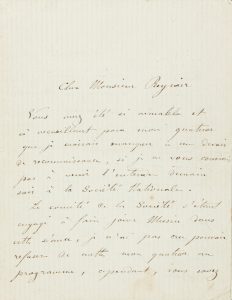 Cher Monsieur
Vous avez été si aimable et
si bienveillant pour mon quatuor
que je croirais manquer à un devoir
de reconnaissance, si je ne vous conviais
pas à venir l'entendre demain
soir à la Société Nationale.
Le comité de la Société s'étant
engagé à faire jouer dans
cette séance, je n'ai pas cru pouvoir
refuser de mettre mon quatuor au
programme, cependant, vous savez